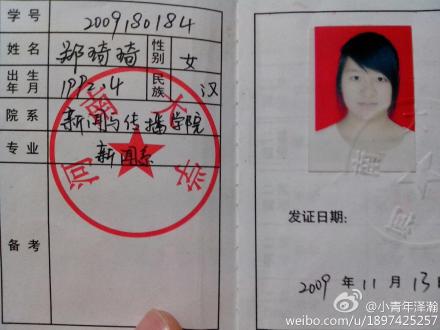 学号 2009180184
姓名 郑琦琦 性别 女
出生年月 1992.4 民族 汉
院系 新闻与传播学院
专业 新闻系
备考
河南大学
发证日期:
2009 年 11 月 13日
@小青年泽瀚
weibo.com/u/1897425257